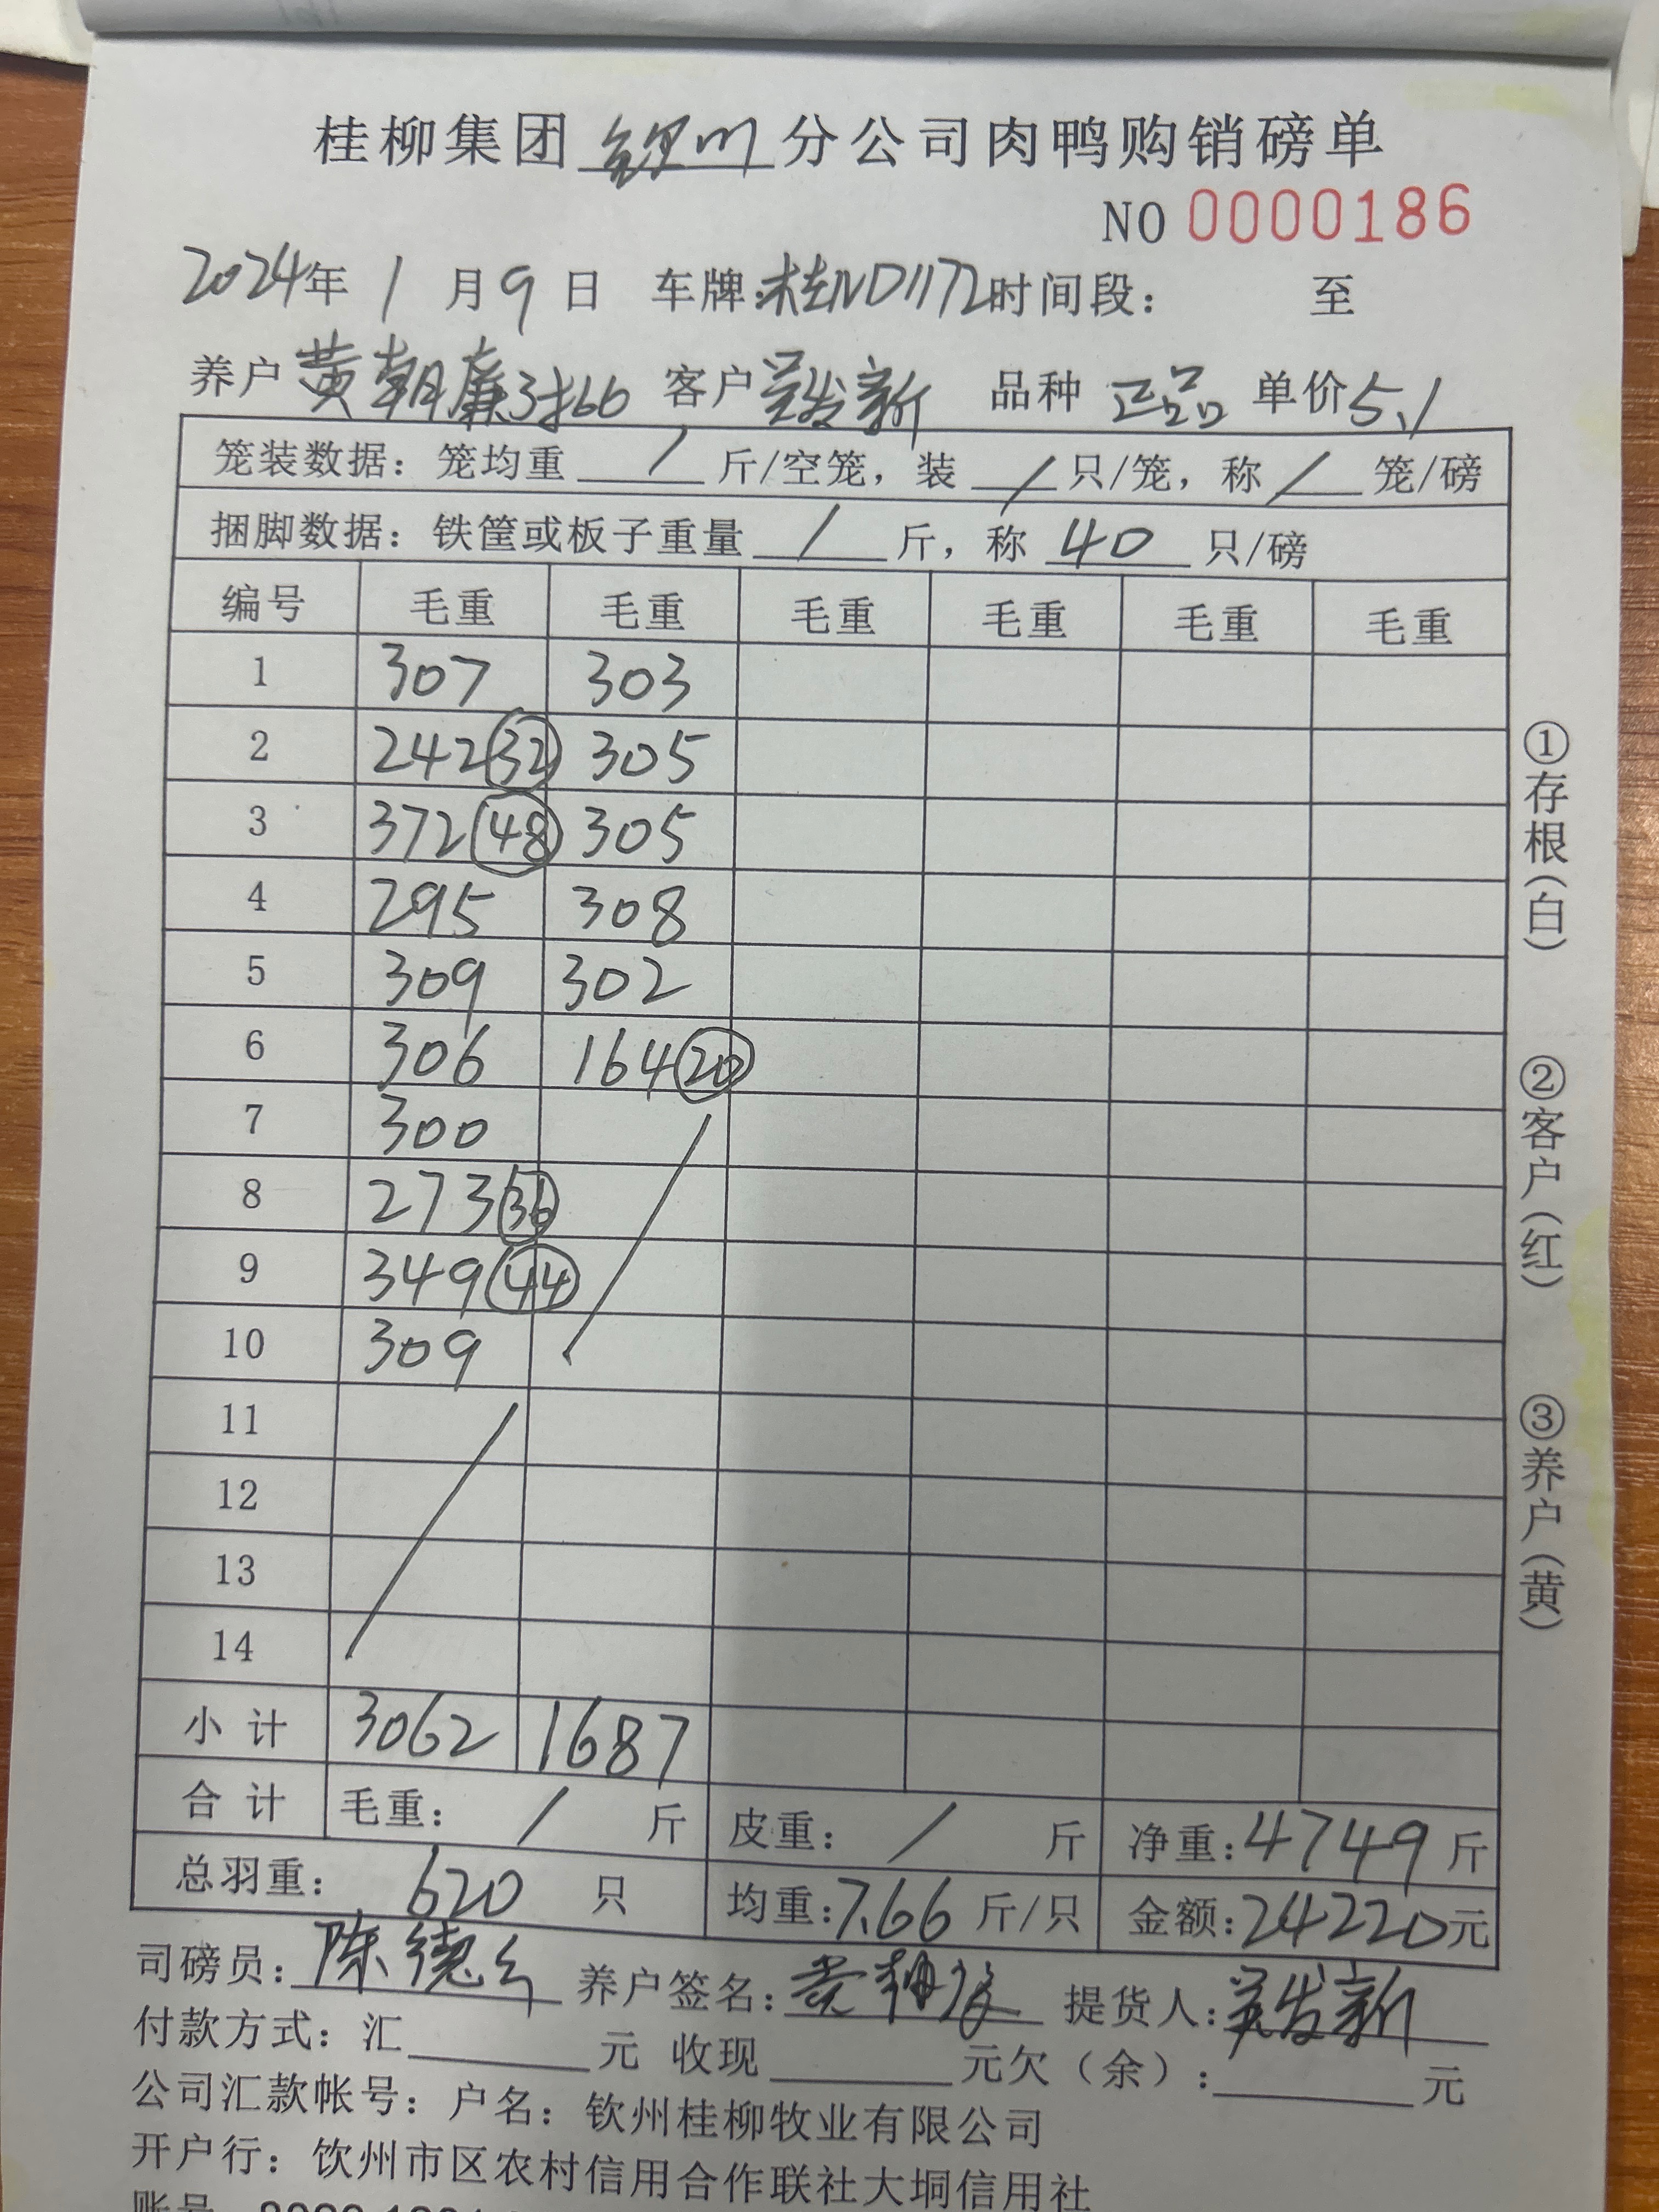 桂柳集团钦州分公司肉鸭购销磅单
NO 0000186
2024年 1 月 9 日 车牌:桂ND1172时间段： 至
养户 黄朝廉3批66 客户 吴发新 品种 正品 单价5.1
笼装数据：笼均重 / 斤/空笼，装 / 只/笼，称 / 笼/磅
捆脚数据：铁筐或板子重量 / 斤，称 40 只/磅
编号 毛重 毛重 毛重 毛重 毛重 毛重
1 307 303
2 242 32 305
3 372 48 305
4 295 308
5 309 302
6 306 164 20
7 300
8 273 36
9 349 44
10 309
11
12
13
14
小计 3062 1687
合计 毛重： / 斤 皮重： / 斤 净重：4749斤
总羽重： 620 只 均重：7.66 斤/只 金额：24220元
司磅员：陈德 养户签名：黄朝 提货人：吴发新
付款方式：汇 元 收现 元欠（余）： 元
公司汇款帐号：户名：钦州桂柳牧业有限公司
开户行：钦州市区农村信用合作联社大垌信用社
账号
①存根（白）
②客户（红）
③养户（黄）